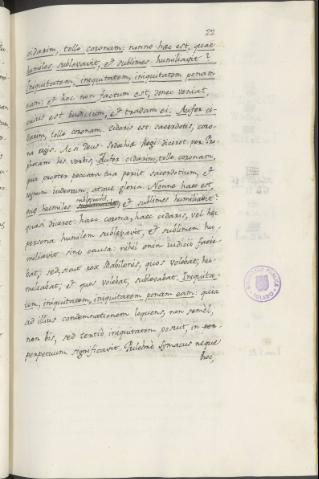 22
cidarim, tolle coronam: nonne hæc est, quæ
humilem sublevavit, et sublimem humiliavit?
Iniquitatem, iniquitatem, iniquitatem ponam
eam: et hoc non factum est, donec veniat,
cuius est iudicium, et tradam ei. Aufer ci-
darim, tolle coronam. cidaris est sacerdotis, coro-
na regis. Ac si Deus Sedechiæ Regi diceret per Pro-
phetam his verbis, Aufer cidarim, tolle coronam,
quia propter peccata tua periit sacerdotium, et
regnum iudæorum, atque gloria. Nonne hæc est,
quæ humilem sublevavit, et sublimem humiliavit?
quasi diceret hæc corona, hæc cidaris, vel hæc
persona humilem sublevavit, et sublimem hu-
miliavit sine causa: nihil enim iudicio facie-
bat, sed
quos volebat, hu-
miliabat, et quos volebat, sublevabat. Iniquita-
tem, iniquitatem, iniquitatem ponam eam: quia
ad illius condemnationem loquens, non semel,
non bis, sed tertio iniquitatem posuit, in
perpetuum significavit.
neque
hoc,